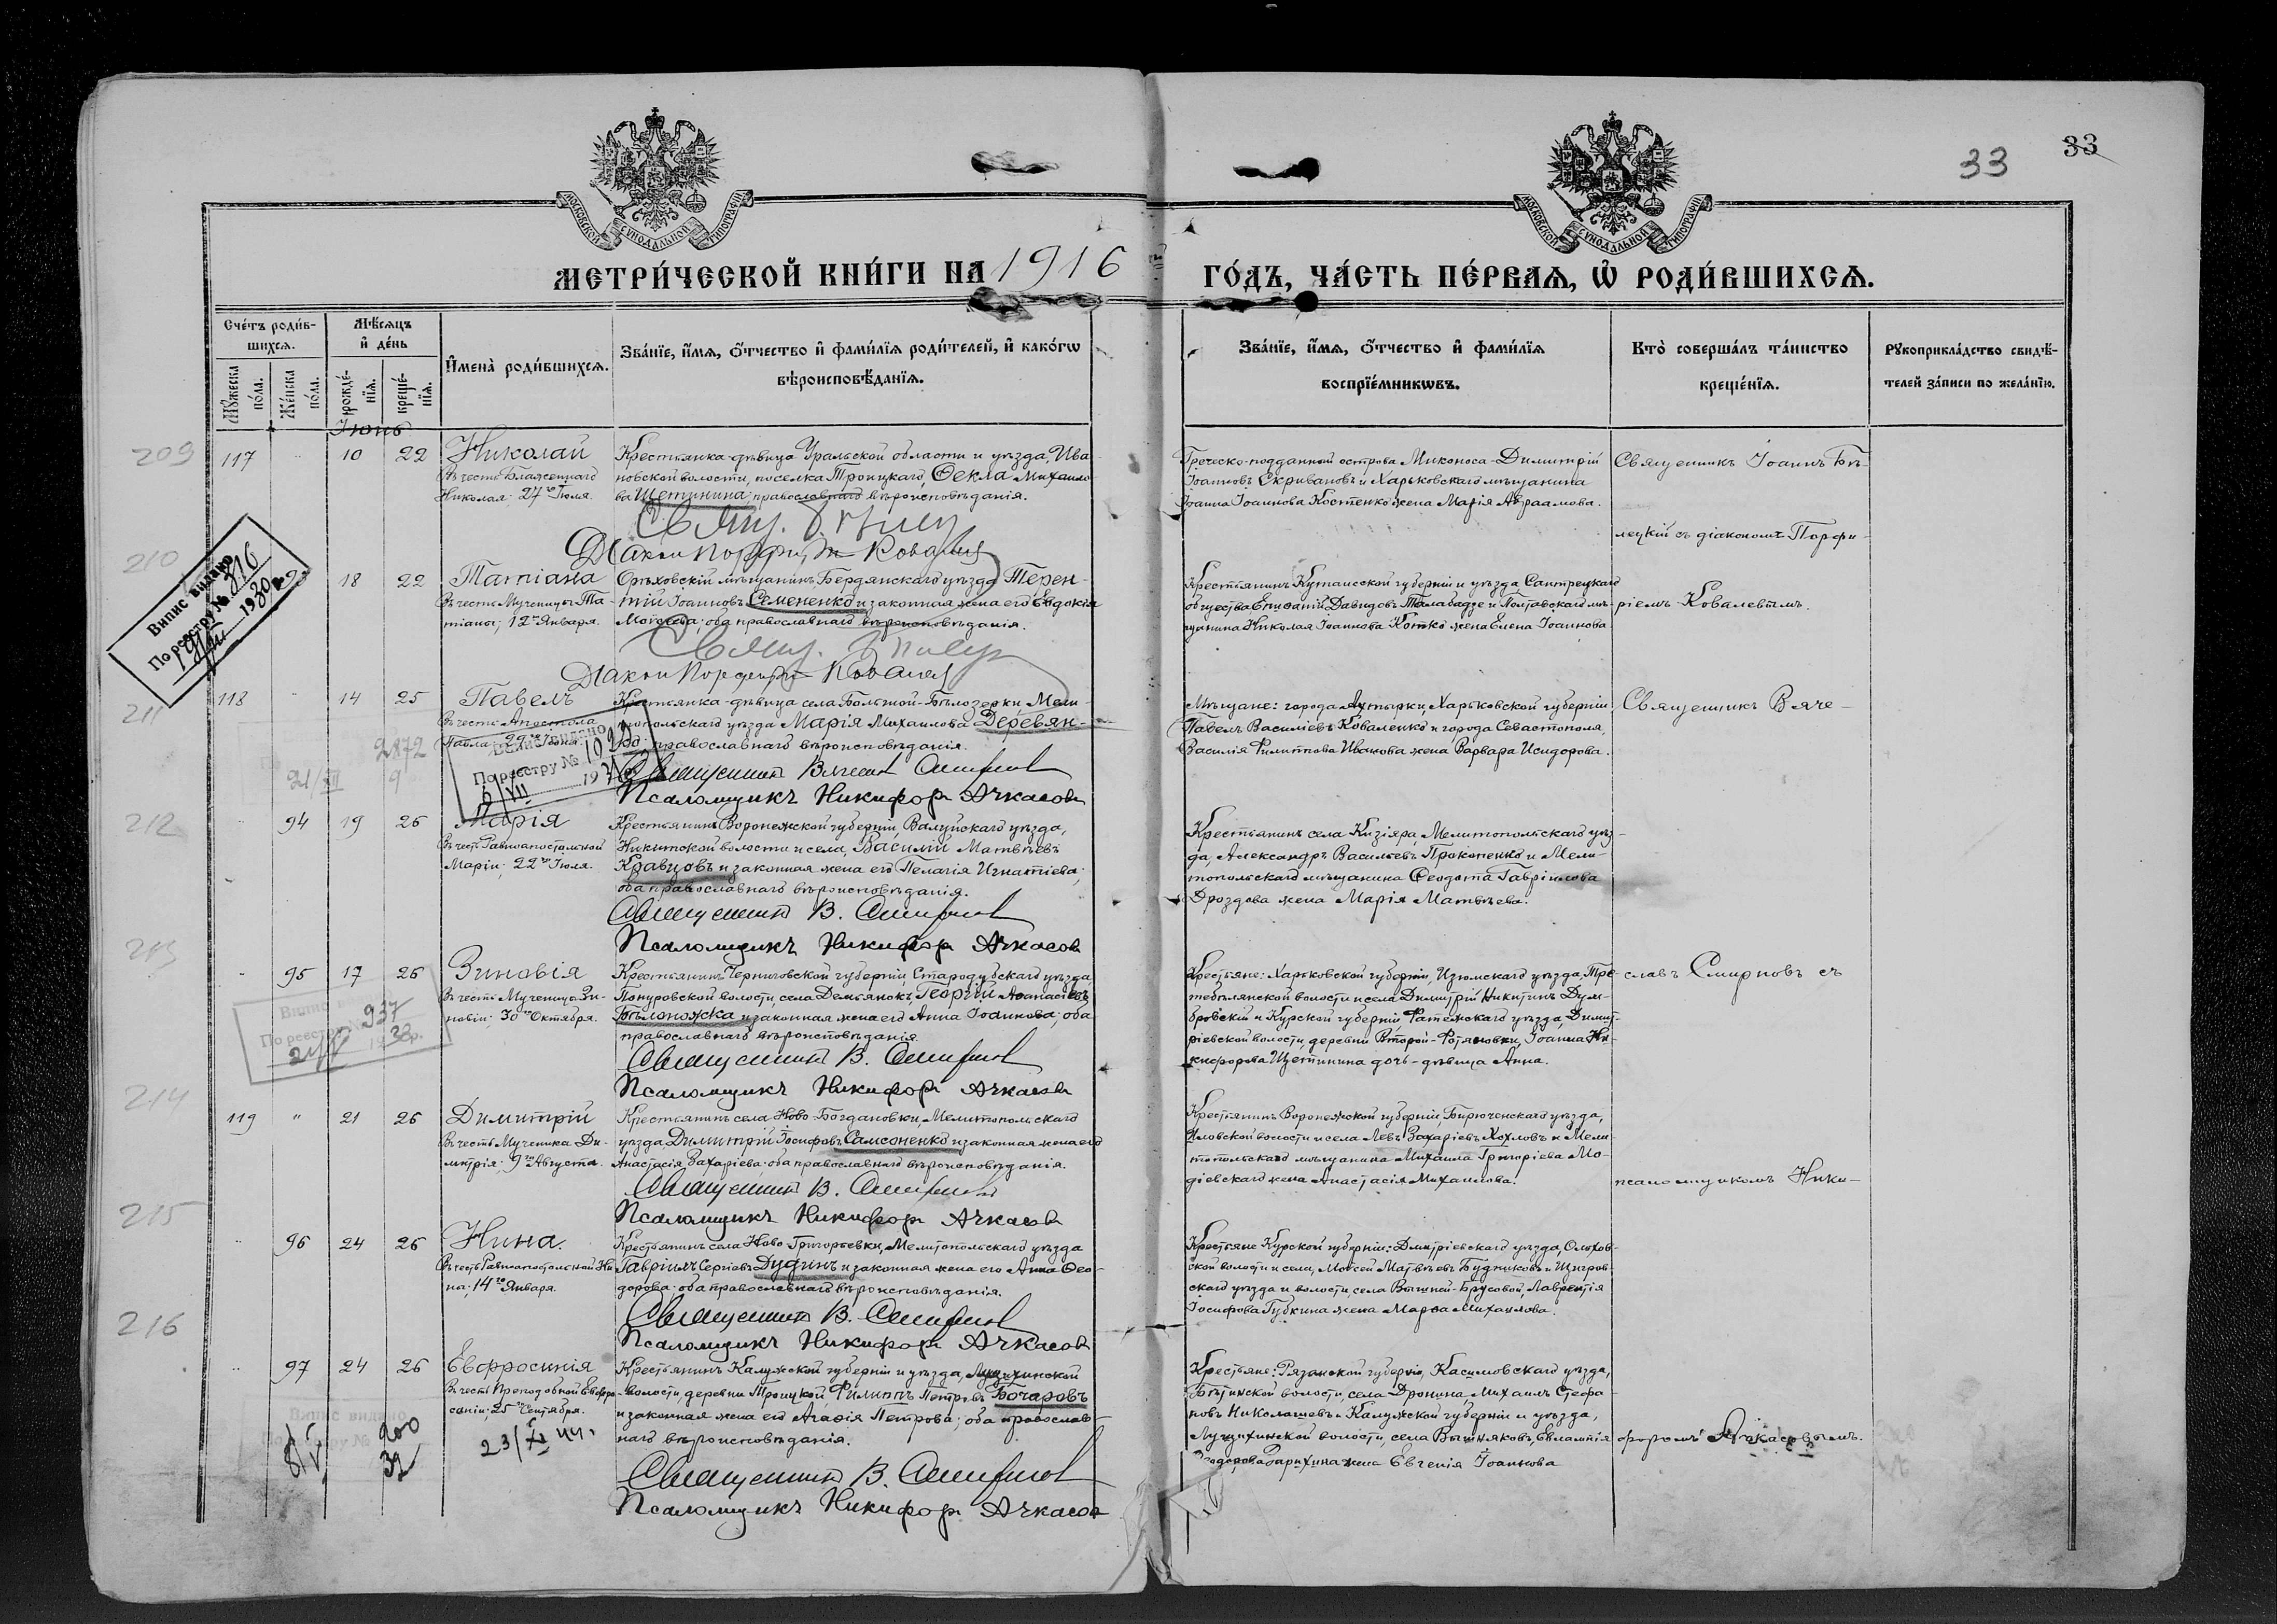 33
33
МОСКОВСКОЙ СУНОДАЛЬНОЙ ТИПОГРАФІИ
МОСКОВСКОЙ СУНОДАЛЬНОЙ ТИПОГРАФІИ
МЕТРИ́ЧЕСКОЙ КНИ́ГИ НА 1916
ГО́ДЪ, ЧА́СТЬ ПЕ́РВАѦ, Ѡ҆ РОДИ́ВШИХСѦ.
Сче́тъ роди́в-
шихсѧ.
Мѣ́сѧцъ
и҆ де́нь
Мꙋ́жеска по́ла.
Же́нска по́ла.
рожде́-нїѧ.
креще́-нїѧ.
И҆мена̀ роди́вшихсѧ.
Зва́нїе, и҆́мѧ, ѻ҆́тчество и҆ фами́лїѧ роди́телей, и҆ како́гѡ
вѣроисповѣ́данїѧ.
Зва́нїе, и҆́мѧ, ѻ҆́тчество и҆ фами́лїѧ
воспрїе́мникѡвъ.
Кто̀ соверша́лъ та́инство
креще́нїѧ.
Рꙋкоприкла́дство свидѣ́-
телей за́писи по жела́нїю.
Іюнь
209
117 " 10 22 Николай
Въ честь Блаженнаго
Николая; 27го Іюля.
Крестьянка-дѣвица Уральской области и уѣзда, Ива-
новской волости, поселка Троицкаго, Ѳекла Михаило-
ва Щетинина; православнаго вѣроисповѣданія.
Діаконъ Порфирій Ковалевъ
Греческо-подданный острова Миконоса Димитрій
Іоанновъ Скривановъ и Харьковскаго мѣщанина
Іоанна Іоаннова Костенко жена Марія Авраамова.
Священникъ Іоаннъ Бѣ-
лецкій съ діакономъ Порфи-
210
Випис видано
По реєстру № 216
1930 р.
18 22 Татіана
Въ честь Мученицы Та-
тіаны; 12го Января.
Орѣховскій мѣщанинъ Бердянскаго уѣзда Терен-
тій Іоанновъ Семененко и законная жена его Евдокія
оба православнаго вѣроисповѣданія.
Діаконъ Порфирій Ковалевъ
Крестьянинъ Кутаисской губерніи и уѣзда, Сантредскаго
общества Епифаній Давидовъ Талабадзе и Полтавскаго мѣ-
щанина Николая Іоаннова Котко жена Елена Іоаннова
ріемъ Ковалевымъ.
211
118 " 14 25 Павелъ
Въ честь Апостола
Павла; 29го Іюня.
Крестьянка-дѣвица села Большой-Бѣлозерки, Мели-
топольскаго уѣзда Марія Михаилова Деревян-
ко; православнаго вѣроисповѣданія.
Священникъ Вячеславъ Смирновъ
Псаломщикъ Никифоръ Ачкасовъ
2872
21/XII
Випис видано
По реєстру №
6/VII
Мѣщане: города Ахтырки, Харьковской губерніи
Павелъ Василіевъ Коваленко и города Севастополя,
Василія Филиппова Иванова жена Варвара Исидорова.
Священникъ Вяче-
212
" 94 19 26 Марія
Въ честь Равноапостольной
Маріи; 22го Іюля.
Крестьянинъ Воронежской губерніи, Валуйскаго уѣзда,
Никитской волости и села, Василій Матвѣевъ
Кравцовъ и законная жена его Пелагія Игнатіева;
оба православнаго вѣроисповѣданія.
Священникъ В. Смирновъ
Псаломщикъ Никифоръ Ачкасовъ
Крестьянинъ села Кизіяра, Мелитопольскаго уѣз-
да, Александръ Васильевъ Прокопенко и Мели-
топольскаго мѣщанина Ѳеодота Гавріилова
Дроздова жена Марія Матвѣева.
213
" 95 17 26 Зиновія
Въ честь Мученицы Зи-
новіи; 30го Октября.
Крестьянинъ Черниговской губерніи, Стародубскаго уѣзда,
Понуровской волости, села Демьянокъ, Георгій Аѳанасіевъ
Бѣлоножка и законная жена его Анна Іоаннова; оба
православнаго вѣроисповѣданія.
Священникъ В. Смирновъ
Псаломщикъ Никифоръ Ачкасовъ
Випис видано
По реєстру № 937
Крестьяне: Харьковской губерніи, Изюмскаго уѣзда,
волости и села Димитрій Никитинъ
и Курской губерніи, Фатежскаго уѣзда, Димит-
ріевской волости, деревни Второй- Іоанна Ни-
кифорова Щетинина дочь-дѣвица Анна.
славъ Смирновъ съ
214
119 " 21 26 Димитрій
Въ честь Мученика Ди-
митрія; 9го Августа.
Крестьянинъ села Ново-Богдановки, Мелитопольскаго
уѣзда Димитрій Іосифовъ Самсоненко и законная жена его
Анастасія Захаріева; оба православнаго вѣроисповѣданія.
Священникъ В. Смирновъ
Псаломщикъ Никифоръ Ачкасовъ
Крестьянинъ Воронежской губерніи, Бирюченскаго уѣзда,
Иловской волости и села Левъ Захаріевъ Хохловъ и Мели-
топольскаго мѣщанина Михаила Григоріева Мо-
діевскаго жена Анастасія Михаилова.
псаломщикомъ Ники-
215
" 96 24 26 Нина.
Въ честь Равноапостольной Ни-
ны; 14го Января.
Крестьянинъ села Ново-Григорьевки, Мелитопольскаго уѣзда
Гавріилъ Сергіевъ Дудинъ и законная жена его Анна Ѳео-
дорова; оба православнаго вѣроисповѣданія.
Священникъ В. Смирновъ
Псаломщикъ Никифоръ Ачкасовъ
Крестьяне Курской губерніи: Дмитріевскаго уѣзда,
ской волости и села, Моисей Матвѣевъ Будниковъ и Щигров-
скаго уѣзда и волости, села Вышней- Лаврентія
Іосифова Губкина жена Марѳа Михаилова.
216
" 97 24 26 Евфросинія
Въ честь Преподобной Евфро-
синіи; 25го Сентября.
Крестьянинъ Калужской губерніи и уѣзда,
волости, деревни Троицкой, Филиппъ Петровъ Бочаровъ
и законная жена его Агаѳія Петрова; оба православ-
наго вѣроисповѣданія.
Священникъ В. Смирновъ
Псаломщикъ Никифоръ Ачкасовъ
Випис видано
200
32
23/XI 44.
Крестьяне: Рязанской губерніи, Касимовскаго уѣзда,
волости, села Дронина, Михаилъ Стефа-
новъ Николашевъ и Калужской губерніи и уѣзда,
волости, села Евлампія
Ѳеодорова жена Евгенія Іоаннова
форомъ Ачкасовымъ.